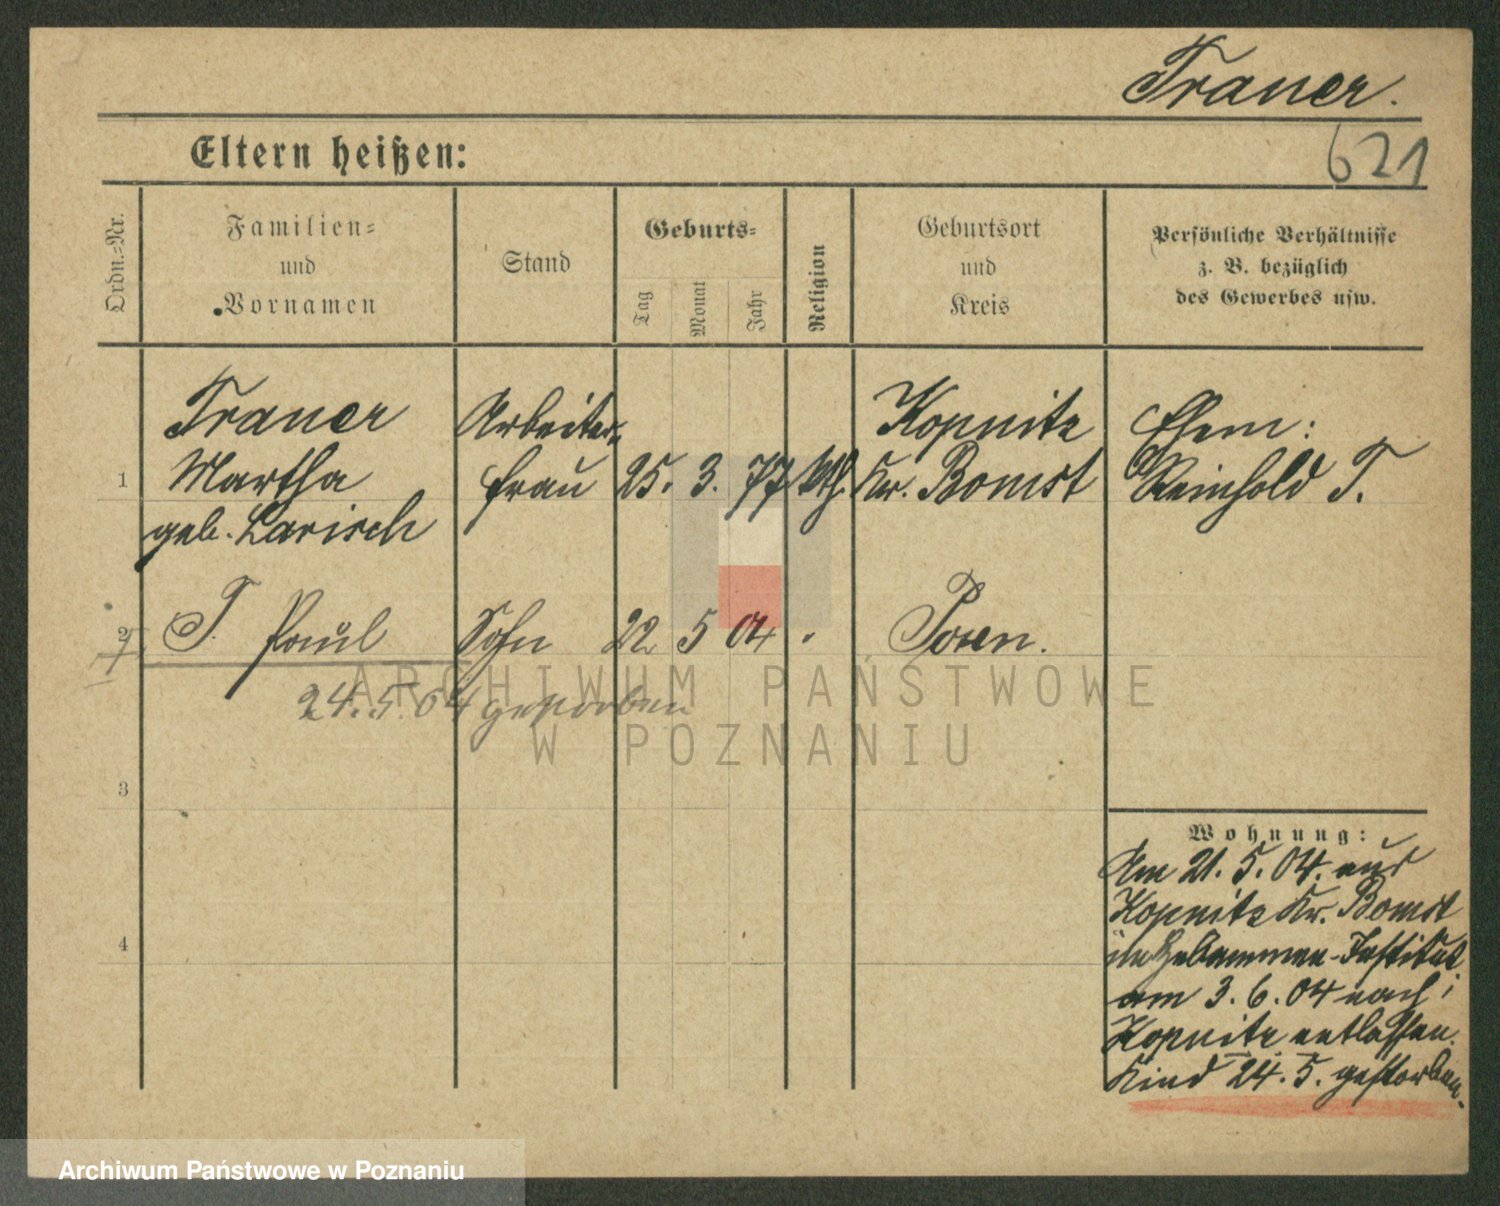 Trauer.
Eltern heißen:
621
Ordn.-Nr.
Familien-
und
Vornamen
Stand
Geburts-
Tag
Monat
Jahr
Religion
Geburtsort
und
Kreis
Persönliche Verhältnisse
z. B. bezüglich
des Gewerbes usw.
1
Trauer
Martha
geb. Larisch
Arbeiter-
frau
25. 3. 77
kth.
Kopnitz
Kr. Bomst
Ehem:
Reinhold T.
2
T. Paul
Sohn
22 5 04
Posen.
24.5.04 gestorben
3
4
Wohnung:
Am 21. 5. 04. aus
Kopnitz Kr. Bomst
in Hebammen-Institut
am 3. 6. 04 nach
Kopnitz entlassen.
Kind 24. 5. gestorben.
ARCHIWUM PAŃSTWOWE
W POZNANIU
Archiwum Państwowe w Poznaniu